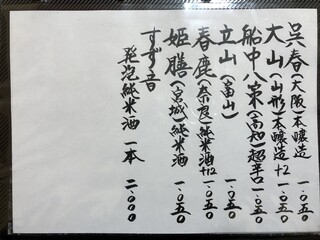 呉春(大阪)本醸造 一、〇五〇
大山(山形)本醸造+2 一、〇五〇
船中八策(高知)超辛口 一、〇五〇
立山(富山) 一、〇五〇
春鹿(奈良)純米酒+12 一、〇五〇
姫膳(宮城)純米酒 一、〇五〇
すず音
発泡純米酒 一本 二、〇〇〇